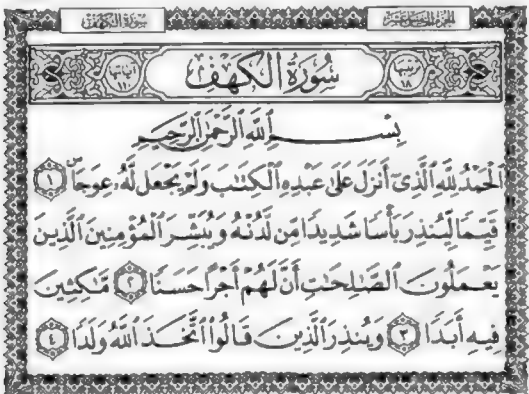 الجزء الخامس عشر سورة الكهف
ترتيبها ١٨ سورة الكهف آياتها ١١٠
بِسْمِ ٱللَّهِ ٱلرَّحْمَٰنِ ٱلرَّحِيمِ
ٱلْحَمْدُ لِلَّهِ ٱلَّذِىٓ أَنزَلَ عَلَىٰ عَبْدِهِ ٱلْكِتَٰبَ وَلَمْ يَجْعَل لَّهُۥ عِوَجَاۜ ١
قَيِّمًا لِّيُنذِرَ بَأْسًا شَدِيدًا مِّن لَّدُنْهُ وَيُبَشِّرَ ٱلْمُؤْمِنِينَ ٱلَّذِينَ
يَعْمَلُونَ ٱلصَّٰلِحَٰتِ أَنَّ لَهُمْ أَجْرًا حَسَنًا ٢ مَّٰكِثِينَ
فِيهِ أَبَدًا ٣ وَيُنذِرَ ٱلَّذِينَ قَالُوا۟ ٱتَّخَذَ ٱللَّهُ وَلَدًا ٤